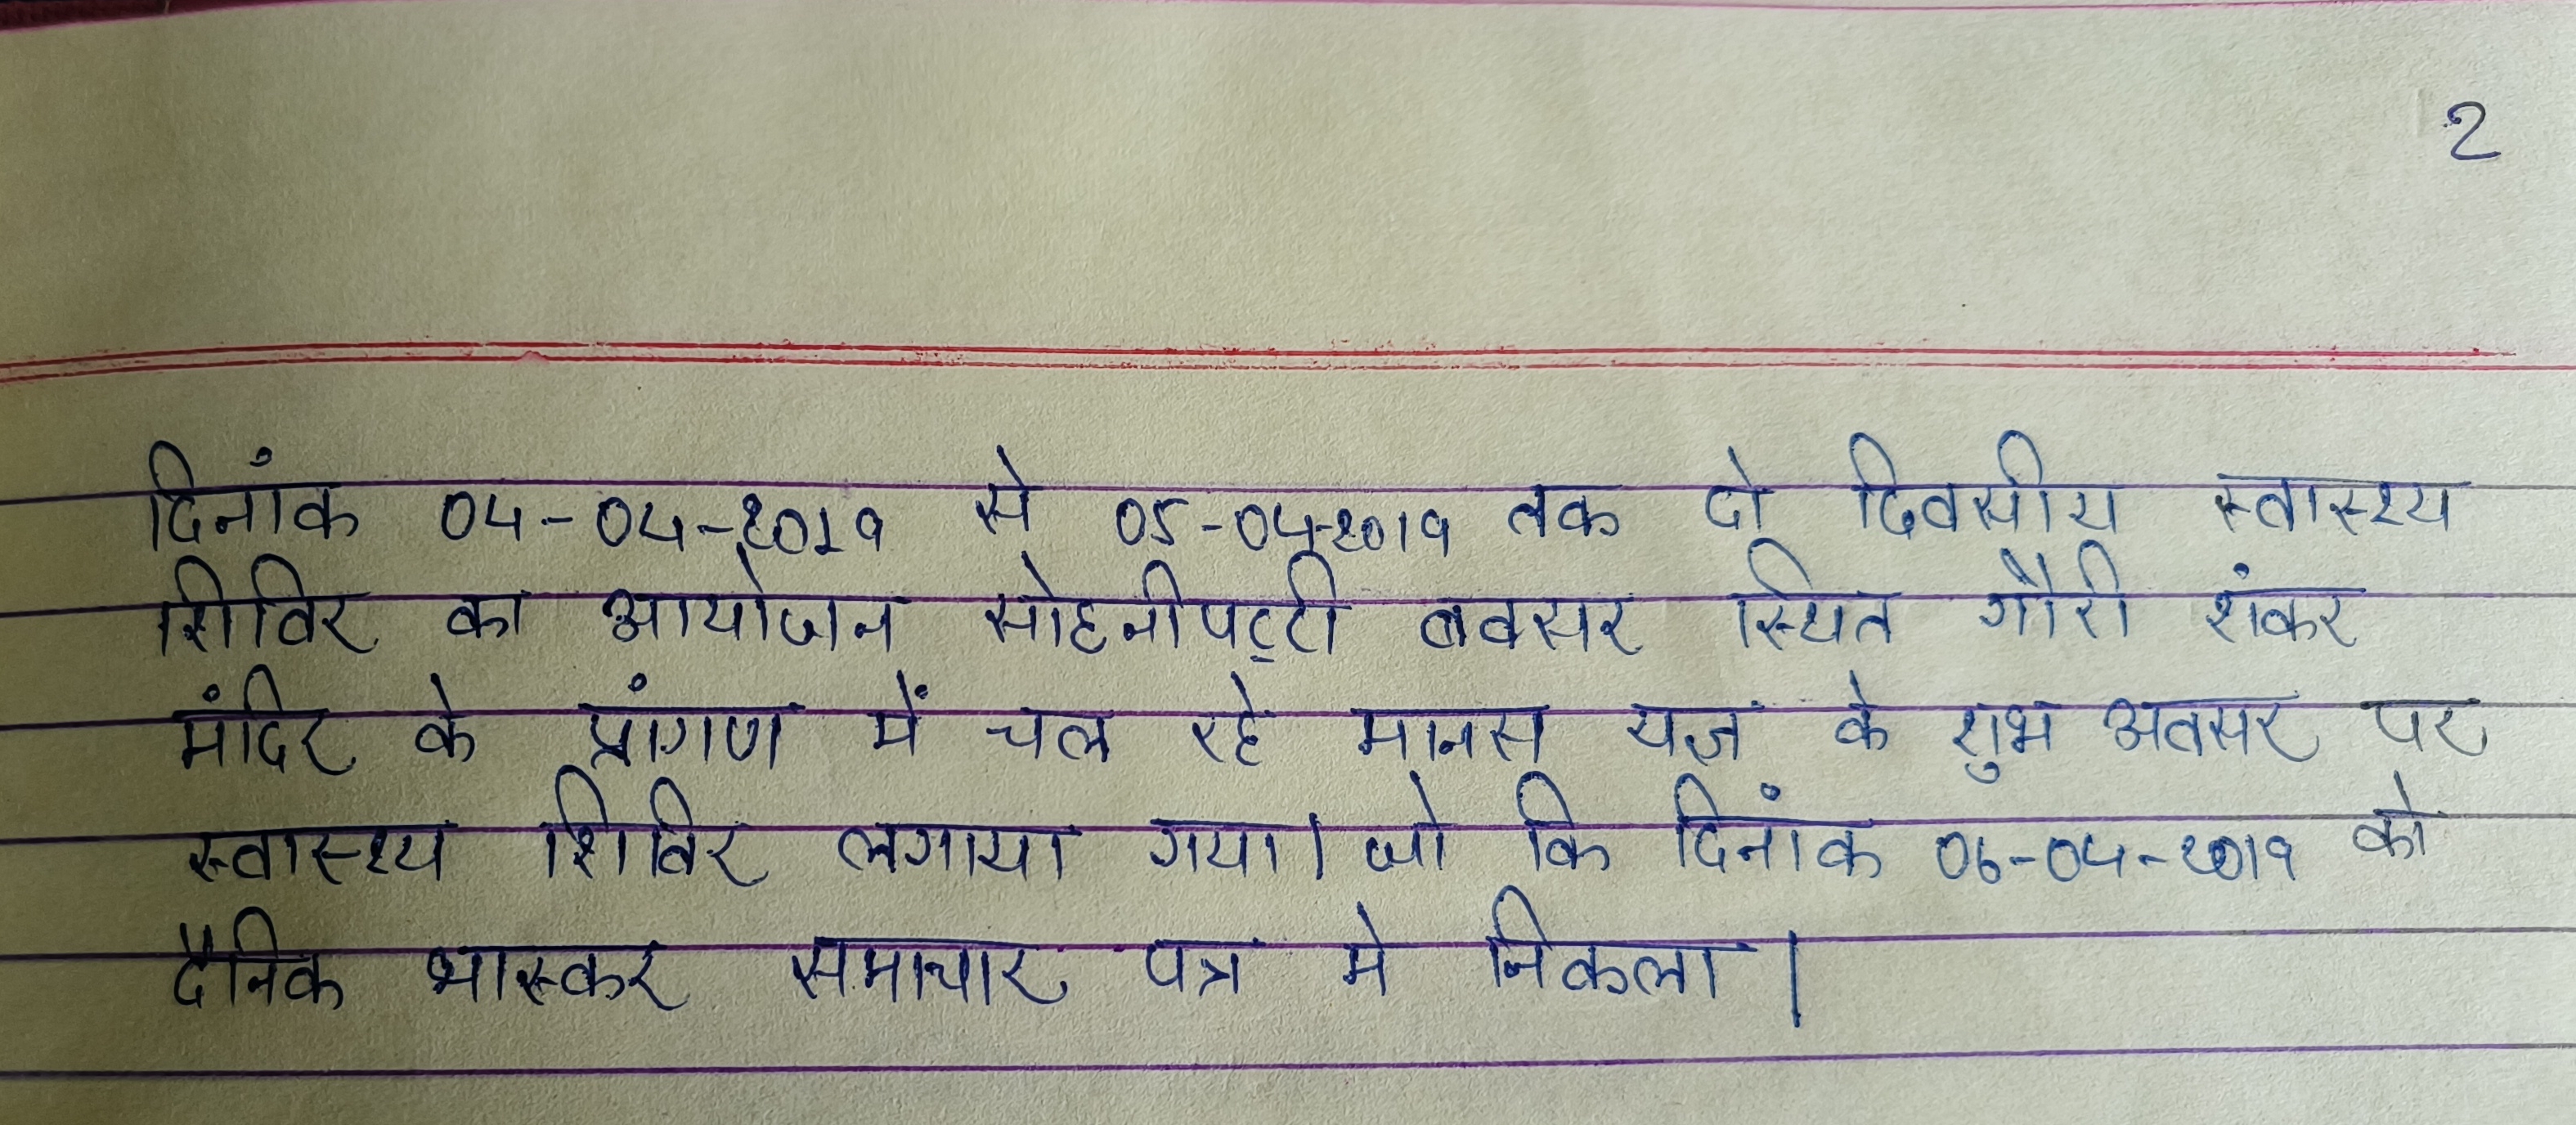 2
दिनांक 04-04-2019 से 05-04-2019 तक दो दिवसीय स्वास्थ्य
शिविर का आयोजन सोहनीपट्टी बक्सर स्थित गौरी शंकर
मंदिर के प्रांगण में चल रहे मानस यज्ञ के शुभ अवसर पर
स्वास्थ्य शिविर लगाया गया। जो कि दिनांक 06-04-2019 को
दैनिक भास्कर समाचार पत्र मे निकला।